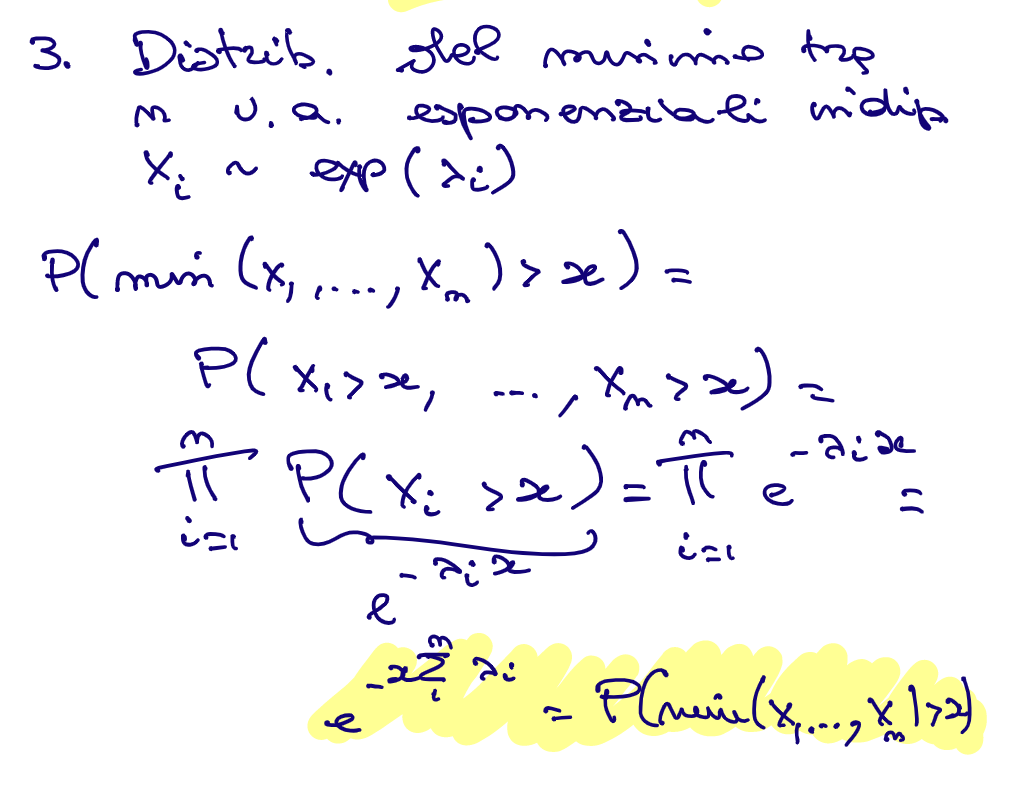 3. Distrib. del minimo tra
n v.a. esponenziali indip
X_i ~ exp(λ_i)
P(min(X_1, ..., X_n) > x) =
P(X_1 > x, ..., X_n > x) =
∏_{i=1}^{n} P(X_i > x) = ∏_{i=1}^{n} e^{-λ_i x} =
e^{-λ_i x}
e^{-x ∑_{i}^{n} λ_i} = P(min(X_1, ..., X_n) > x)